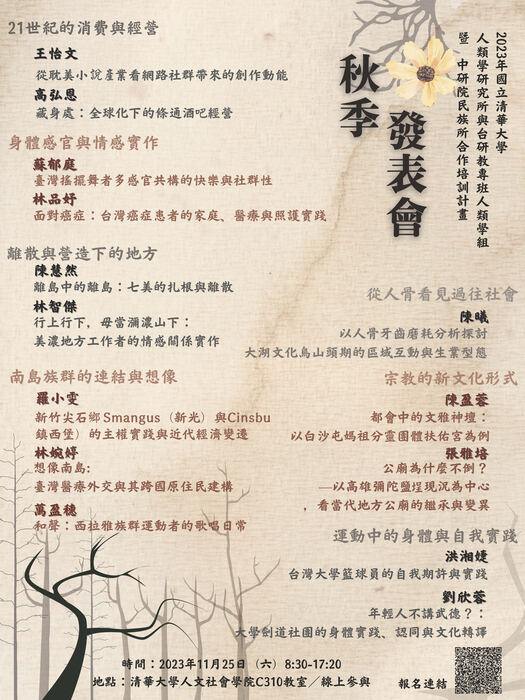 2023年國立清華大學
人類學研究所與台研教專班人類學組
暨 中研院民族所合作培訓計畫
秋季
發表會
21世紀的消費與經營
王怡文
從耽美小說產業看網路社群帶來的創作動能
高弘恩
藏身處：全球化下的條通酒吧經營
身體感官與情感實作
蘇郁庭
臺灣搖擺舞者多感官共構的快樂與社群性
林品妤
面對癌症：台灣癌症患者的家庭、醫療與照護實踐
離散與營造下的地方
陳慧然
離島中的離島：七美的扎根與離散
林智傑
行上行下，毋當瀰濃山下：
美濃地方工作者的情感關係實作
南島族群的連結與想像
羅小雯
新竹尖石鄉Smangus（新光）與Cinsbu
鎮西堡）的主權實踐與近代經濟變遷
林婉婷
想像南島:
臺灣醫療外交與其跨國原住民建構
萬盈穗
和聲：西拉雅族群運動者的歌唱日常
從人骨看見過往社會
陳曦
以人骨牙齒磨耗分析探討
大湖文化烏山頭期的區域互動與生業型態
宗教的新文化形式
陳盈蓉
都會中的文雅神壇：
以白沙屯媽祖分靈團體扶佑宮為例
張雅培
公廟為什麼不倒？
—以高雄彌陀鹽埕現況為中心
，看當代地方公廟的繼承與變異
運動中的身體與自我實踐
洪湘婕
台灣大學籃球員的自我期許與實踐
劉欣蓉
年輕人不講武德？：
大學劍道社團的身體實踐、認同與文化轉譯
時間：2023年11月25日（六）8:30-17:20
地點：清華大學人文社會學院C310教室／線上參與
報名連結